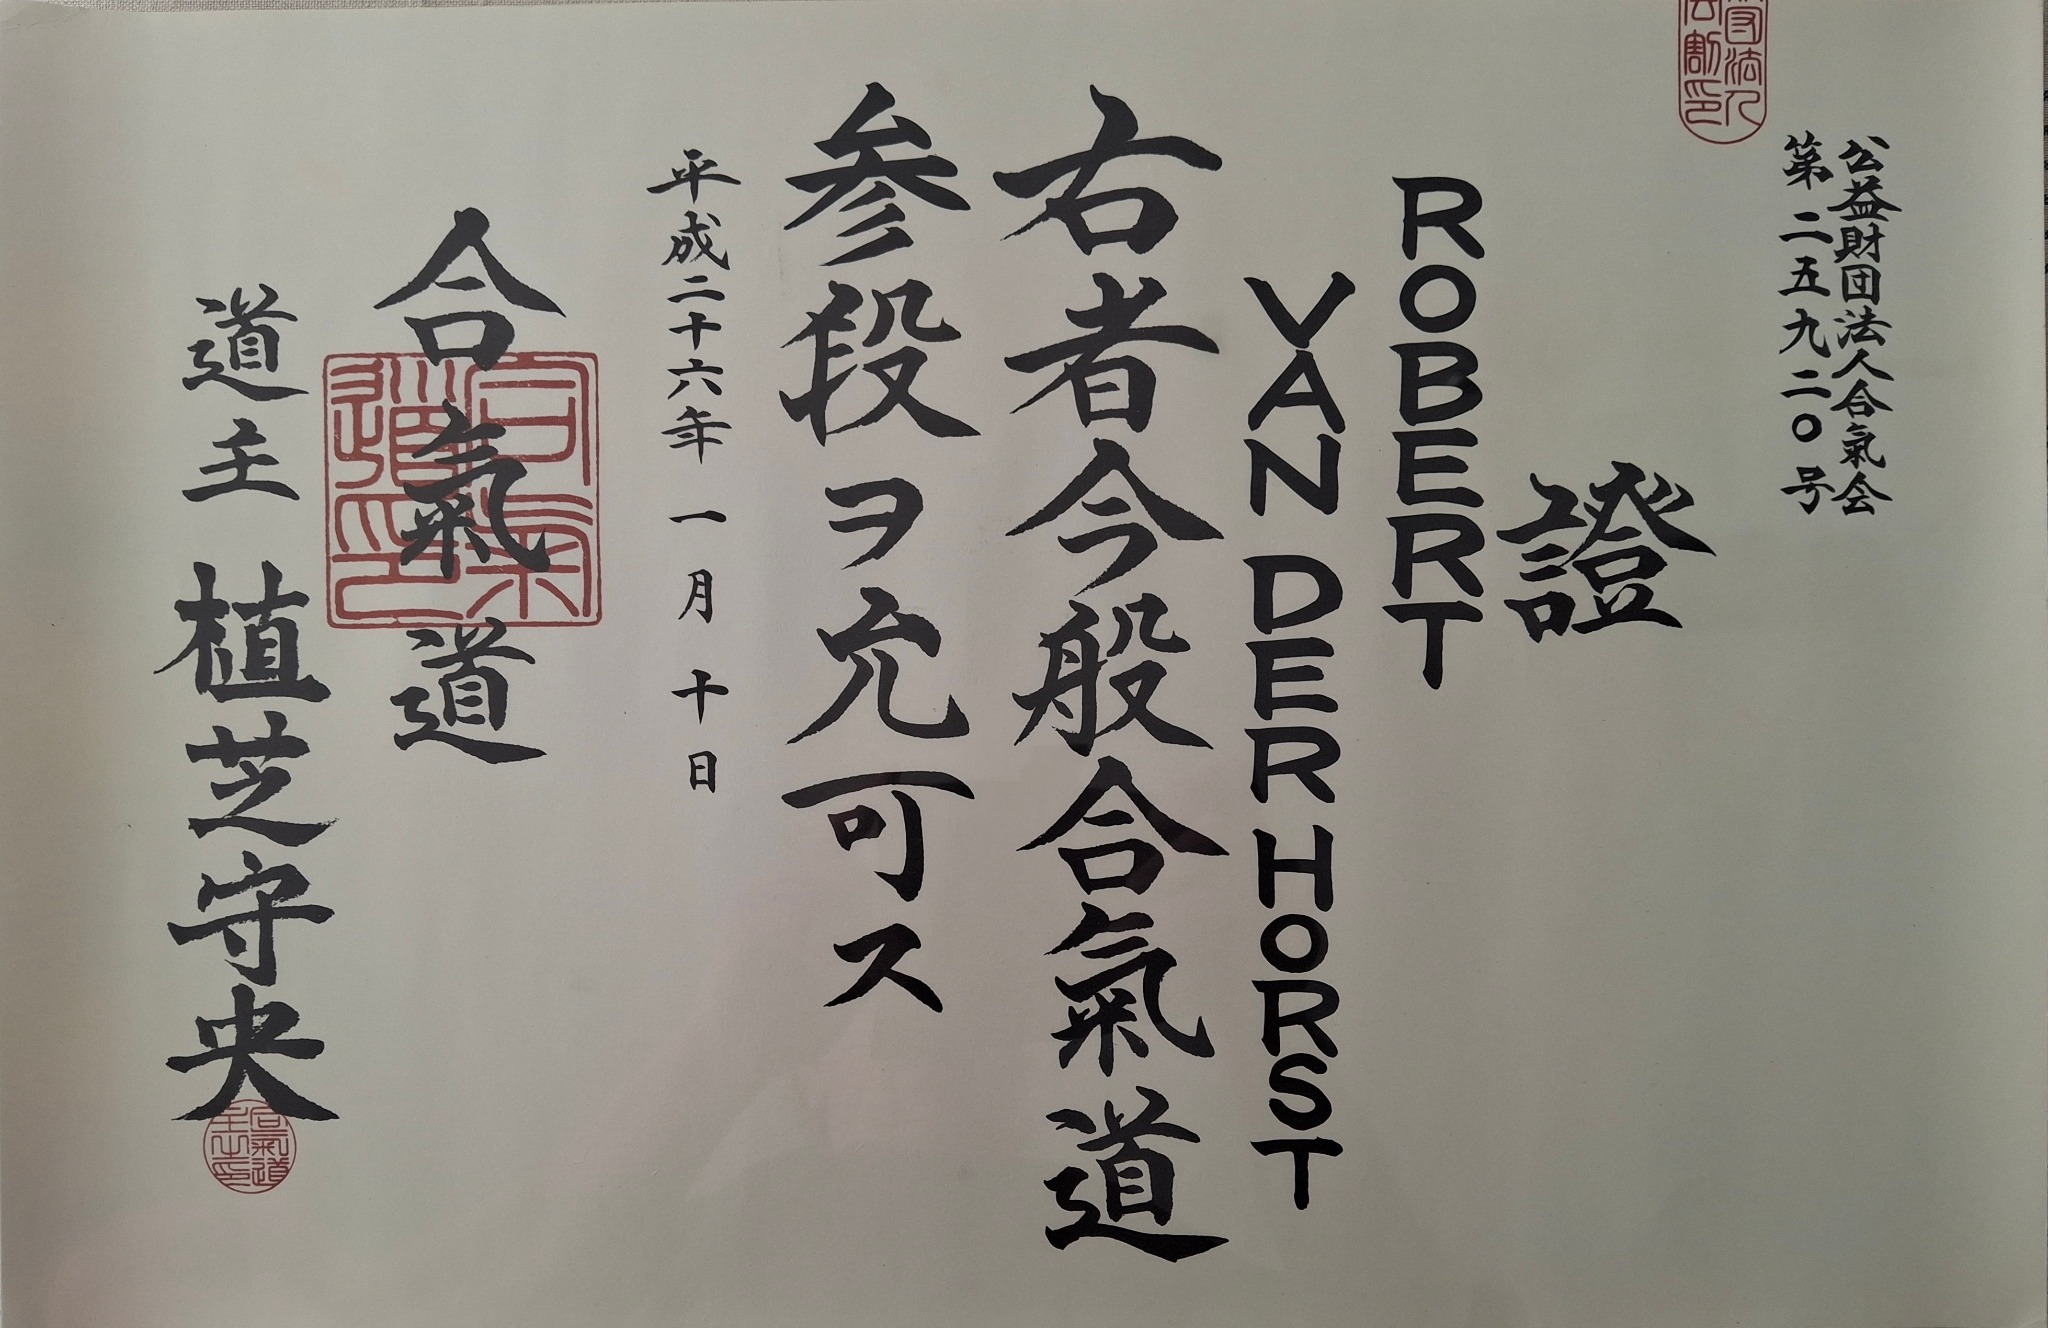 公益財団法人合氣会
第二五九二〇号
證
ROBERT
VAN DER HORST
右者今般合氣道
参段ヲ允可ス
平成二十六年一月十日
合氣道
道主 植芝守央